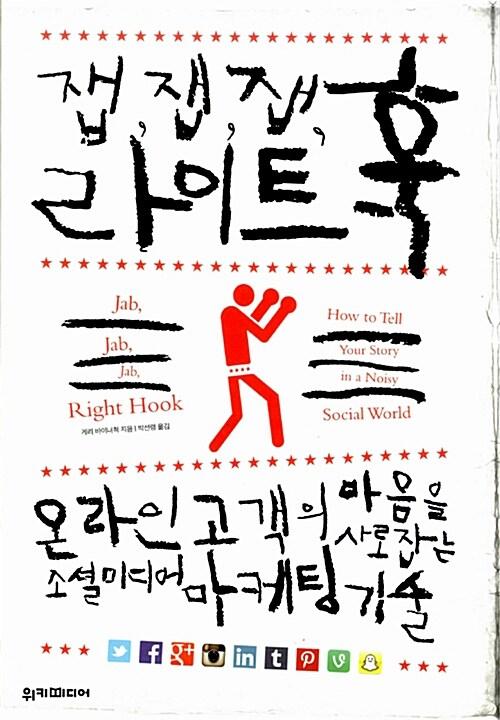 잽, 잽, 잽,
라이트 훅
Jab,
Jab,
Jab,
Right Hook
게리 바이너척 지음 | 박선령 옮김
How to Tell
Your Story
in a Noisy
Social World
온라인 고객의 마음을
사로잡는
소셜미디어 마케팅 기술
위키미디어